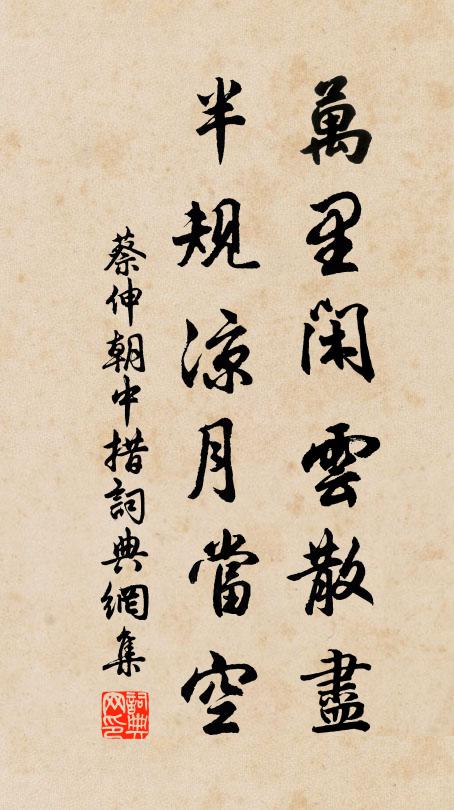 萬里閑雲散盡
半規涼月當空
蔡伸朝中措詞典網集
詞典网印